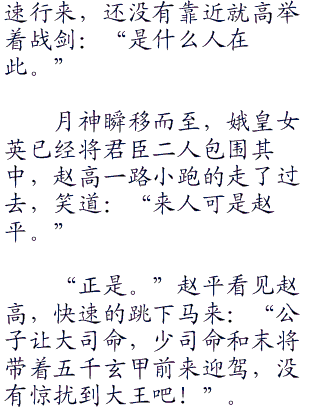 速行来，还没有靠近就高举
着战剑：“是什么人在
此。”
月神瞬移而至，娥皇女
英已经将君臣二人包围其
中，赵高一路小跑的走了过
去，笑道：“来人可是赵
平。”
“正是。”赵平看见赵
高，快速的跳下马来：“公
子让大司命，少司命和末将
带着五千玄甲前来迎驾，没
有惊扰到大王吧！”。